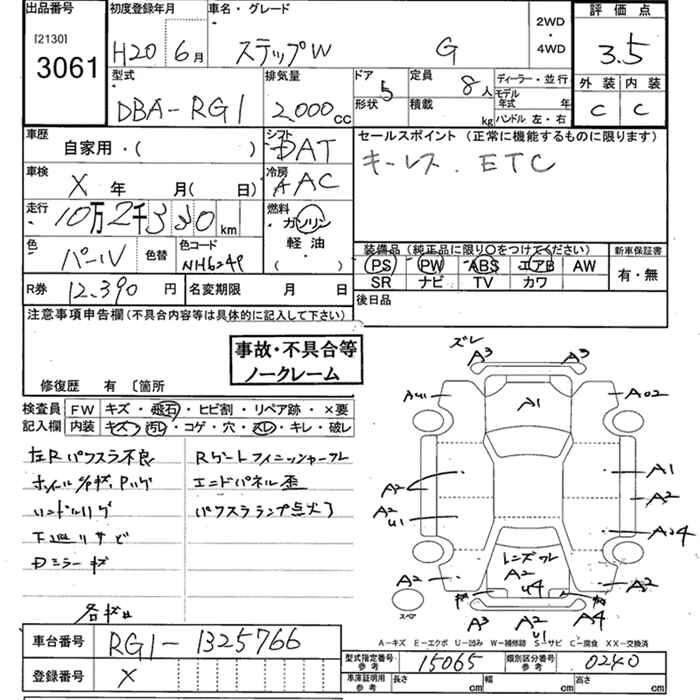 出品番号 初度登録年月 車名・グレード 2WD・4WD 評価点
[2130]
3061 H20 6月 ステップW G 3.5
型式 排気量 ドア 定員 ディーラー・並行 外装 内装
DBA-RG1 2,000cc 5 8人 モデル年式 年 C C
形状 積載 kg ハンドル 左・右
車歴 自家用・( ) シフト DAT セールスポイント (正常に機能するものに限ります)
キーレス. ETC
車検 X 年 月( 日) 冷房 AAC
走行 10万2千330km 燃料 ガソリン 軽油 ( )
色 パール 色替 色コード NH624P 装備品(純正品に限り○をつけてください) 新車保証書
PS PW ABS エアB AW 有・無
SR ナビ TV カワ
R券 12,390円 名変期限 月 日 後日品
注意事項申告欄(不具合内容等は具体的に記入して下さい)
事故・不具合等
ノークレーム
修復歴 有〔箇所
検査員 FW キズ・飛石・ヒビ割・リペア跡・×要
記入欄 内装 キズ・汚レ・コゲ・穴・スレ・キレ・破レ
左Rパワスラ不良 Rゲートフィニッシャーワレ
ホイルガキズ, Pハゲ エンドパネル歪
ハンドルハゲ パワスラランプ点灯
下廻りサビ
Dミラーキズ
各キズ
ズレ
A3 A3
AU1 A1 A02
A2 A1
A2
A2
U1
レンズワレ
A2 A2 A2
U4
A3 A2 A4
U1
スペア
A-キズ E-エクボ U-凹み W-補修跡 S-サビ C-腐食 XX-交換済
車台番号 RG1-1325766
登録番号 X
型式指定番号 参考 15065 類別区分番号 参考 0240
車庫証明用 参考 長さ cm 幅 cm 高さ cm